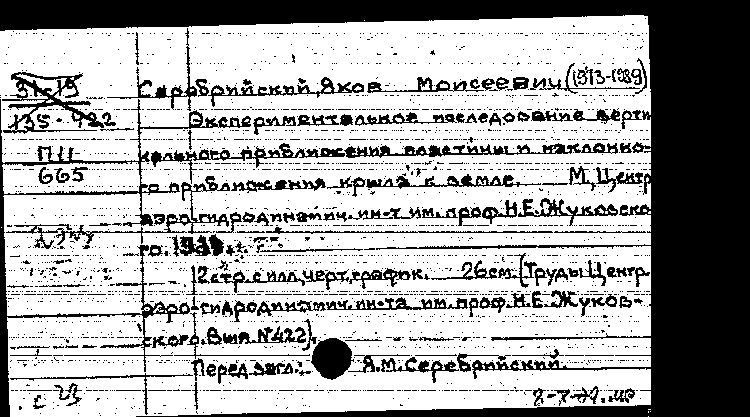 31-19
135-422
П11
665
Серебрийский, Яков Моисеевич (1913-1989)
Экспериментальное исследование верти
кального приближения пластины и наклонно-
го приближения крыла к земле. М, Центр
аэро-гидродинамич. ин-т им. проф. Н.Е.Жуковско
го. 1939.
12 стр. с илл, черт, график. 26 см. (Труды Центр.
аэро-гидродинамич. ин-та им. проф. Н.Е. Жуков-
ского. Вып. №422).
Перед загл.: Я.М. Серебрийский.
с 23